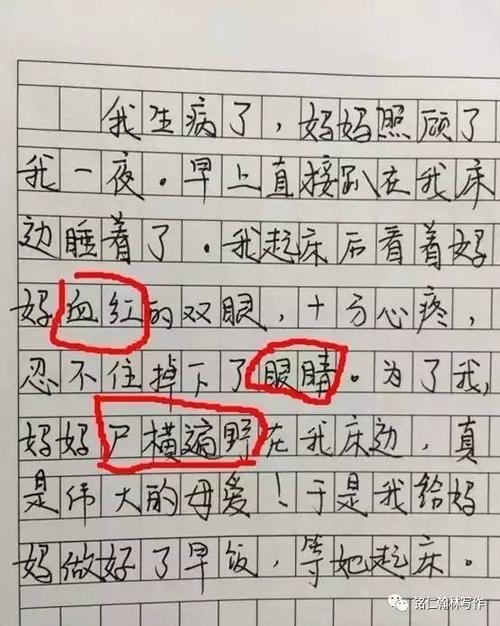 我生病了，妈妈照顾了
我一夜。早上直接趴在我床
边睡着了。我起床后看着妈
妈血红的双眼，十分心疼，
忍不住掉下了眼睛。为了我，
妈妈尸横遍野在我床边，真
是伟大的母爱！于是我给妈
妈做好了早饭，等她起床。
铭仁翰林写作